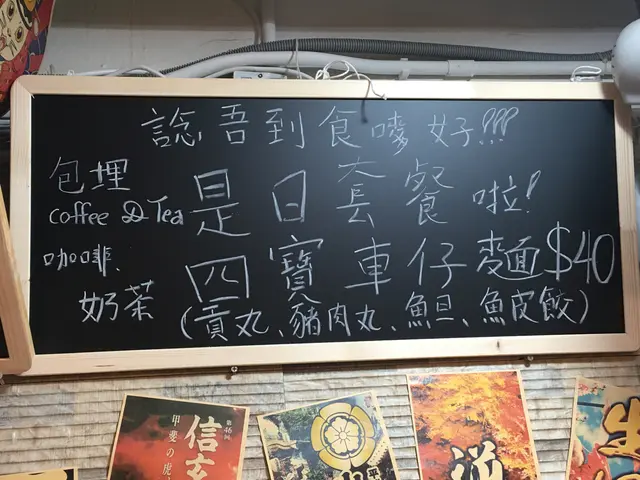 諗吾到食嘜好!!!
包埋
coffee 或Tea
咖啡、
奶茶
是日套餐啦!
四寶車仔麵$40
(貢丸、豬肉丸、魚旦、魚皮餃)
第46回
甲斐の虎
信玄
道
生